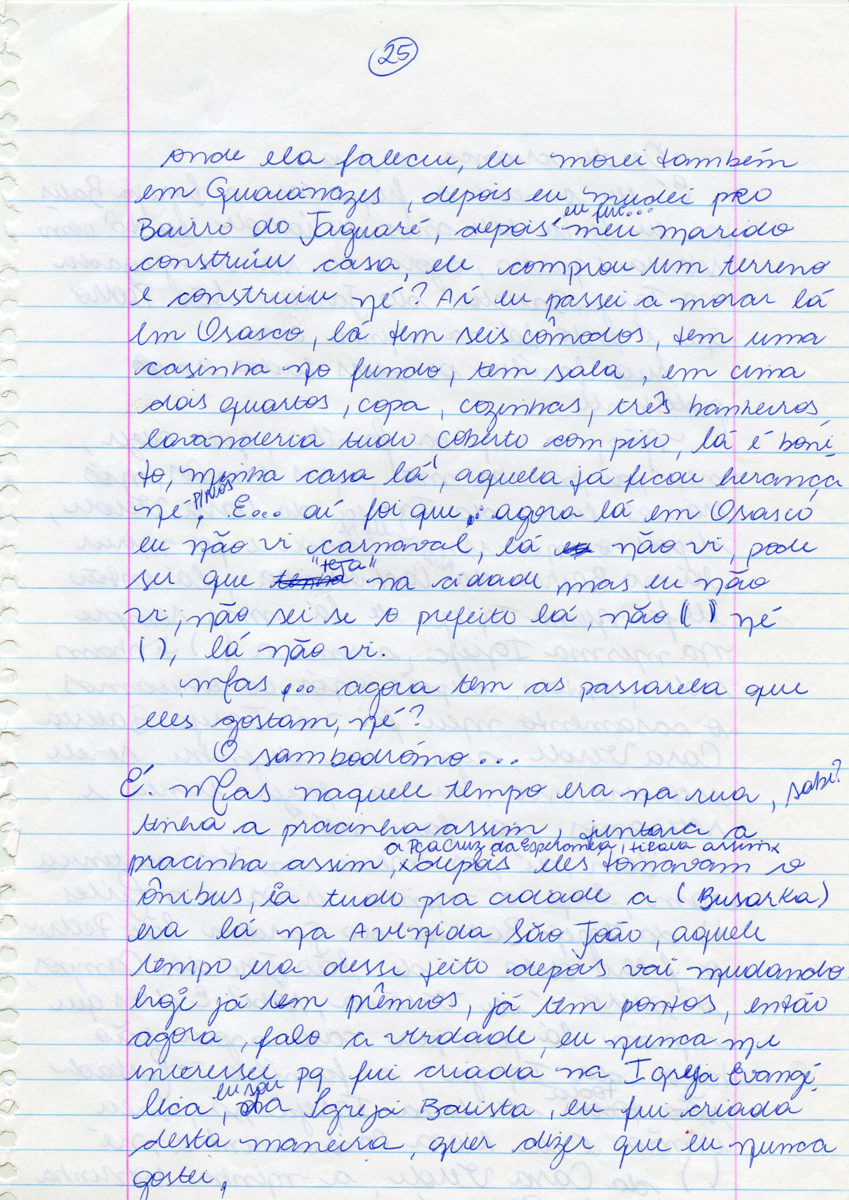 25
onde ela faleceu, eu morei também
em Guaianazes, depois eu mudei pro
eu fui...
Bairro do Jaguaré, depois meu marido
construiu casa, ele comprou um terreno
e construiu né? Aí eu passei a morar lá
em Osasco, lá tem seis cômodos, tem uma
casinha no fundo, tem sala, em cima
dois quartos, copa, cozinhas, três banheiros
lavanderia tudo coberto com piso, lá é boni
to, minha casa lá, aquela já ficou herança
né, E... aí foi que... agora lá em Osasco
eu não vi carnaval, lá não vi, pode
"teja"
ser que tenha na cidade mas eu não
vi, não sei se o prefeito lá, não ( ) né
( ), lá não vi.
Mas ... agora tem as passarela que
eles gostam, né?
O sambodrómo...
É. Mas naquele tempo era na rua, sabe?
tinha a pracinha assim, juntava a
a Pça Cruz da Esperança, ficava assim
pracinha assim, depois eles tomavam o
ônibus, ia tudo pra cidade a (Busarka)
era lá na Avenida São João, aquele
tempo era desse jeito depois vai mudando
hoje já tem prêmios, já tem pontos, então
agora, falo a verdade, eu nunca me
interessei pq fui criada na Igreja Evangé
eu sou
lica, da Igreja Batista, eu fui criada
desta maneira, quer dizer que eu nunca
gostei,